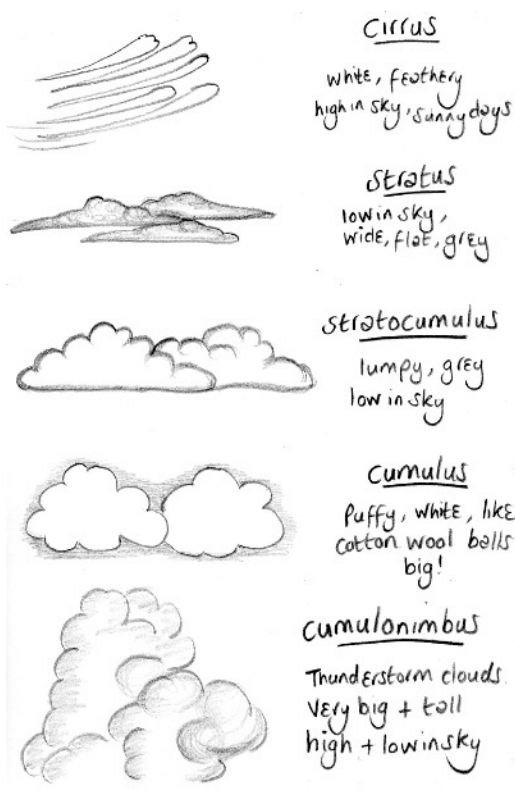 Cirrus
white, feathery
high in sky, sunny days
Stratus
low in sky,
wide, flat, grey
Stratocumulus
lumpy, grey
low in sky
Cumulus
Puffy, white, like
cotton wool balls
big!
Cumulonimbus
Thunderstorm clouds.
very big + tall
high + low in sky